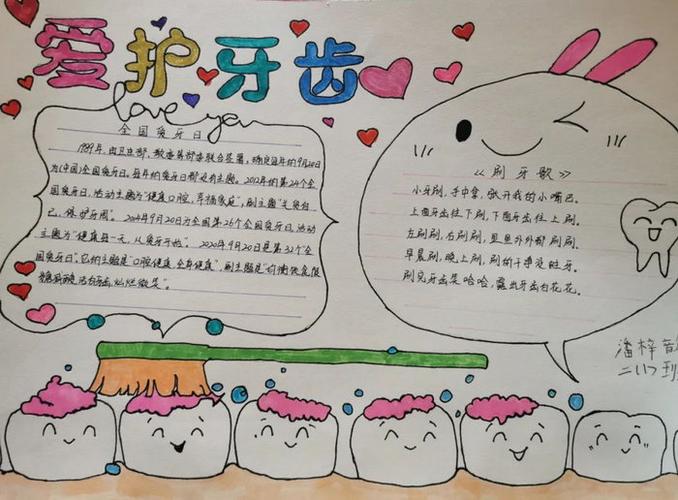 爱护牙齿
love you
全国爱牙日
1989年，由卫生部、教委等部委联合签署，确定每年的9月20日
为(中国)全国爱牙日。每年的爱牙日都设有主题。2012年的第24个全
国爱牙日，活动主题为“健康口腔，幸福家庭”，副主题“关爱自
己，保护牙周”。2014年9月20日为全国第26个全国爱牙日，活动
主题为“健康每一天，从爱牙开始”。2020年9月20日是第32个“全
国爱牙日”，它的主题是“口腔健康，全身健康”，副主题是“均衡饮食限
糖减酸，洁白牙齿，灿烂微笑”。
《刷牙歌》
小牙刷，手中拿，张开我的小嘴巴。
上面牙齿往下刷，下面牙齿往上刷。
左刷刷，右刷刷，里里外外都刷刷。
早晨刷，晚上刷，刷的干净没蛀牙。
刷完牙齿笑哈哈，露出牙齿白花花。
潘梓
二(17)班